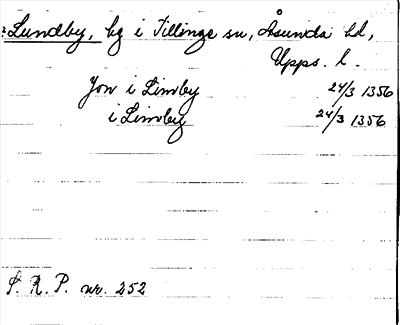 Lundby, by i Tillinge sn, Åsunda hd,
Upps. l.
Jon i Limby 24/3 1356
i Limby 24/3 1356
S. R. P. nr. 252